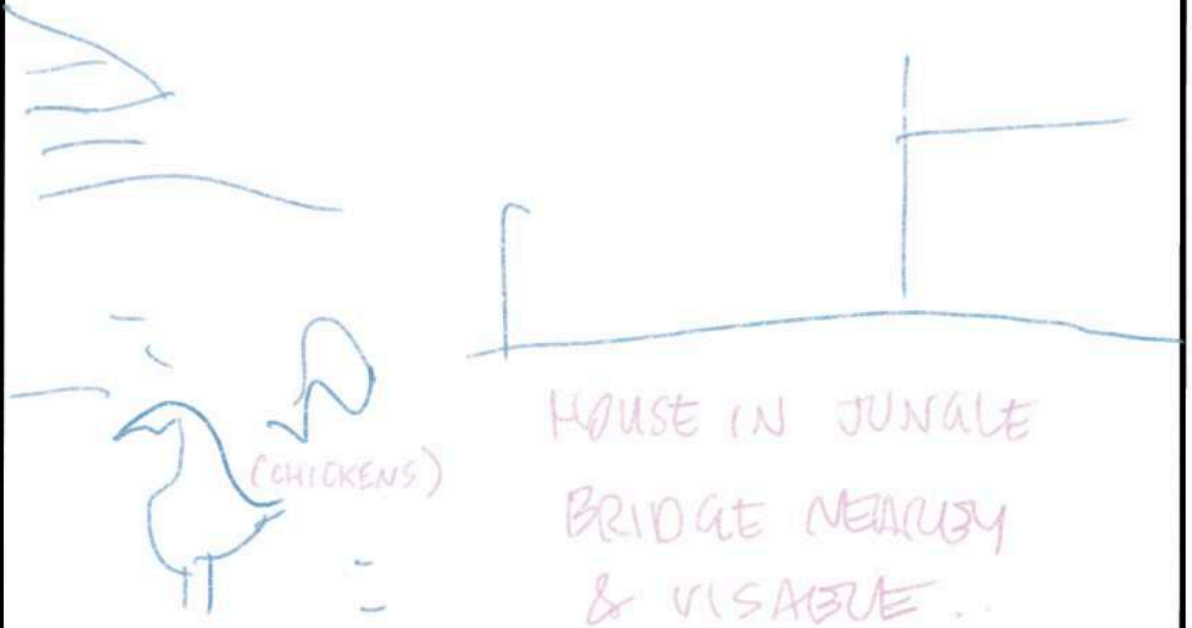 (CHICKENS)
HOUSE IN JUNGLE
BRIDGE NEARBY
& VISABLE..